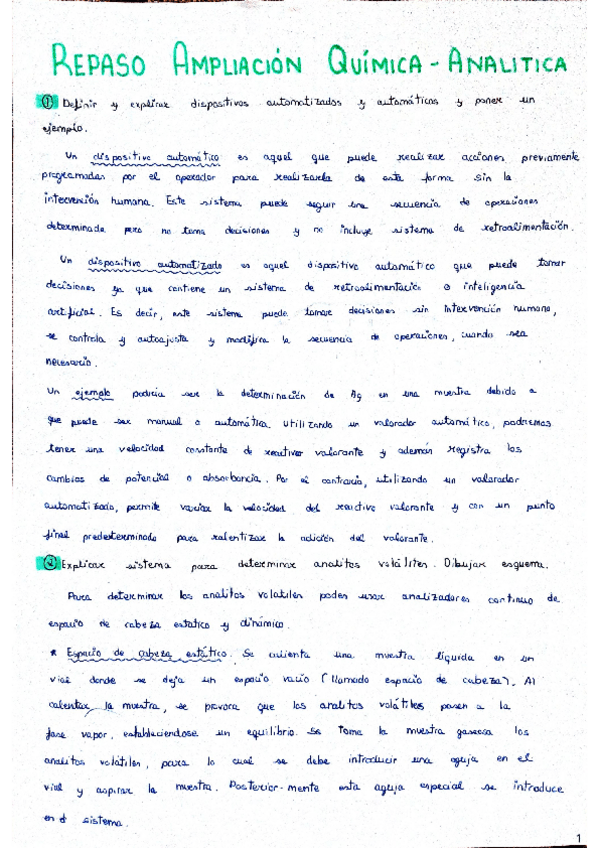 REPASO AMPLIACIÓN QUÍMICA - ANALITICA
① Definir y explicar dispositivos automatizados y automáticos y poner un
ejemplo.
Un dispositivo automático es aquel que puede realizar acciones previamente
programadas por el operador para realizarla de esta forma sin la
intervención humana. Este sistema puede seguir una secuencia de operaciones
determinada pero no toma decisiones y no incluye sistema de retroalimentación.
Un dispositivo automatizado es aquel dispositivo automático que puede tomar
decisiones ya que contiene un sistema de retroalimentación o inteligencia
artificial. Es decir, este sistema puede tomar decisiones sin intervención humana,
se controla y autoajusta y modifica la secuencia de operaciones, cuando sea
necesario.
Un ejemplo podría ser la determinación de Ag en una muestra debido a
que puede ser manual o automática. Utilizando un valorador automático, podremos
tener una velocidad constante de reactivo valorante y además registra los
cambios de potencial o absorbancia. Por el contrario, utilizando un valorador
automatizado, permite variar la velocidad del reactivo valorante y con un punto
final predeterminado para ralentizar la adición del valorante.
② Explicar sistema para determinar analitos volátiles. Dibujar esquema.
Para determinar los analitos volátiles podes usar analizadores continuo de
espacio de cabeza estático y dinámico.
* Espacio de cabeza estático. Se calienta una muestra líquida en un
vial donde se deja un espacio vacío (llamado espacio de cabeza). Al
calentar la muestra, se provoca que los analitos volátiles pasen a la
fase vapor, estableciendose un equilibrio. Se toma la muestra gaseosa los
analitos volátiles, para lo cual se debe introducir una aguja en el
vial y aspirar la muestra. Posterior-mente esta aguja especial se introduce
en el sistema.
1